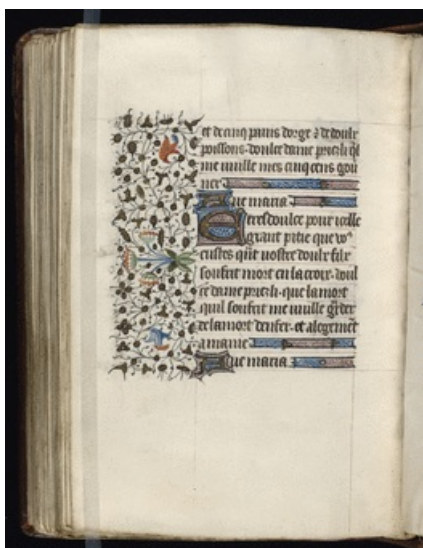 et de cinq pains dorge et de doulx
poissons. doulce dame priez li ql
me vuille mes cinq cens gou
ner
Aue maria
E tresdoulce pour icelle
grant pitie que vo9
eustes qnt uostre doulx filz
souffrit mort en la croix. doul
ce dame priez li. que la mort
quil souffrit me vuille garder
de la mort denfer. et alegement
a mame
Aue maria